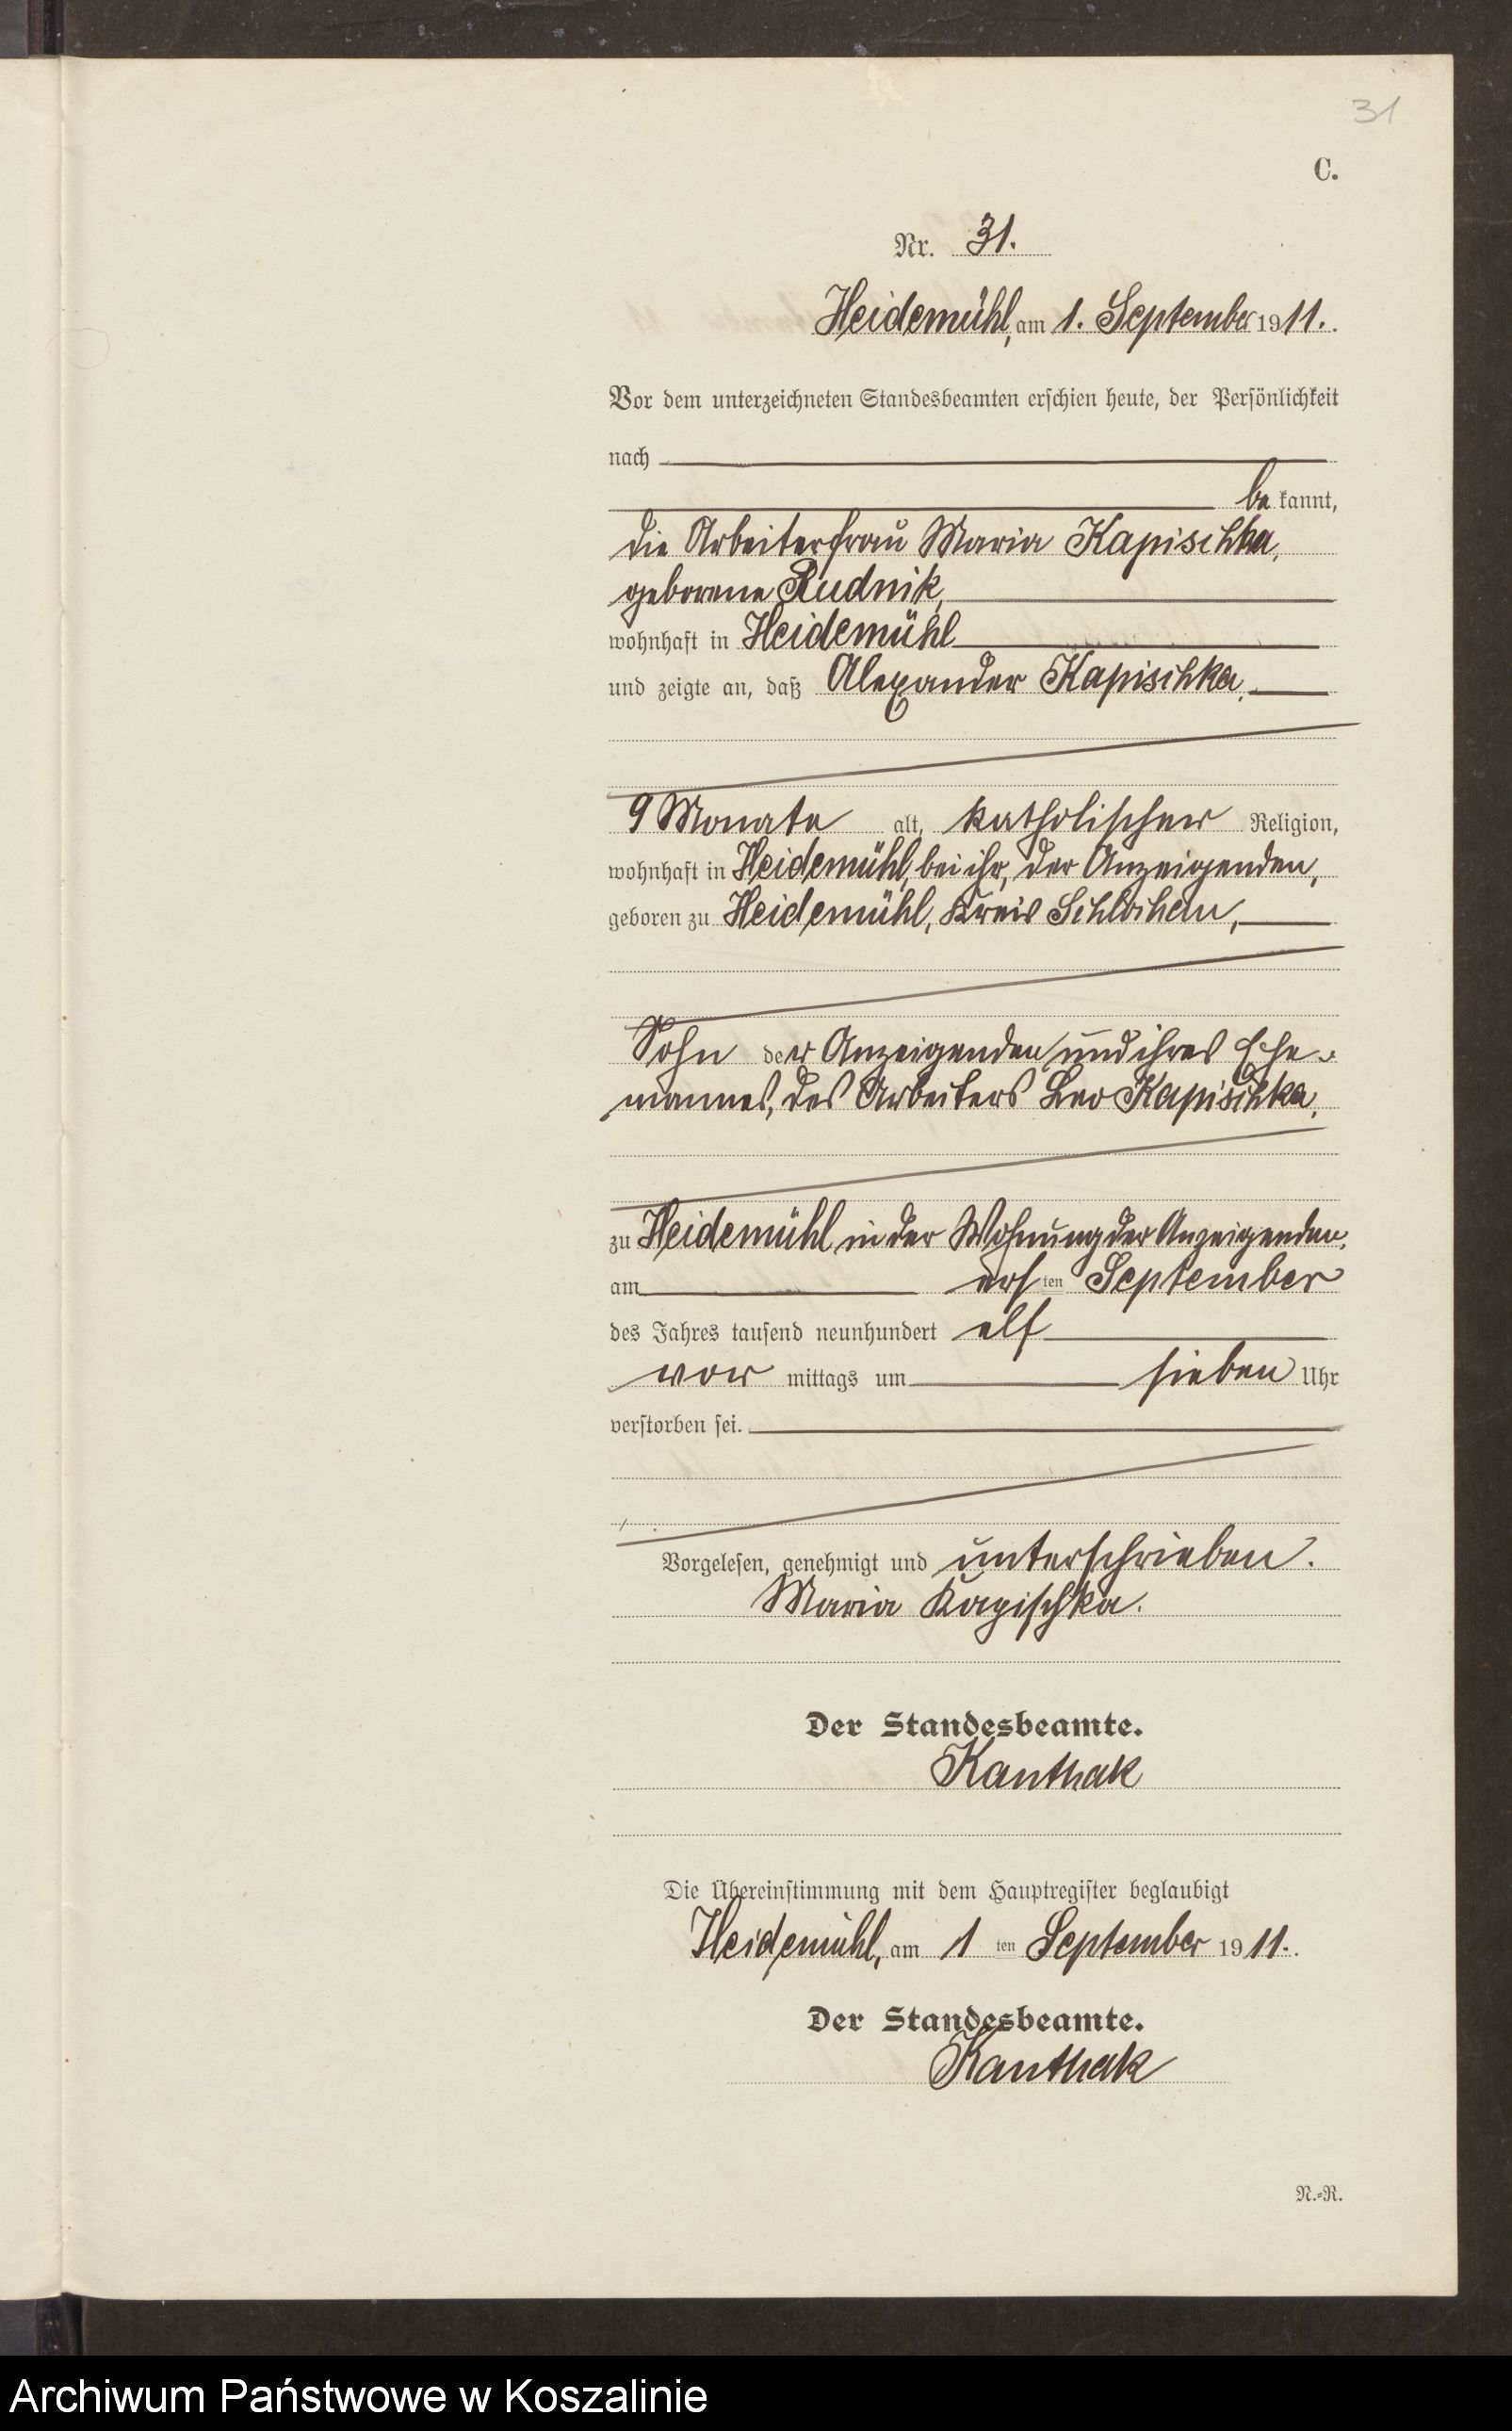 31
C.
Nr. 31.
Heidemühl, am 1. September 1911.
Vor dem unterzeichneten Standesbeamten erschien heute, der Persönlichkeit
nach
be kannt,
die Arbeiterfrau Maria Kapischka,
geborene Rudnik,
wohnhaft in Heidemühl
und zeigte an, daß Alexander Kapischka,
9 Monate alt, katholischer Religion,
wohnhaft in Heidemühl, bei ihr, der Anzeigenden,
geboren zu Heidemühl, Kreis Schlochau,
Sohn der Anzeigenden und ihres Ehe-
mannes, des Arbeiters Leo Kapischka,
zu Heidemühl in der Wohnung der Anzeigenden,
am ersten September
des Jahres tausend neunhundert elf
vor mittags um sieben Uhr
verstorben sei.
Vorgelesen, genehmigt und unterschrieben.
Maria Kapischka.
Der Standesbeamte.
Kanthak
Die Übereinstimmung mit dem Hauptregister beglaubigt
Heidemühl, am 1 ten September 1911.
Der Standesbeamte.
Kanthak
N.=R.
Archiwum Państwowe w Koszalinie